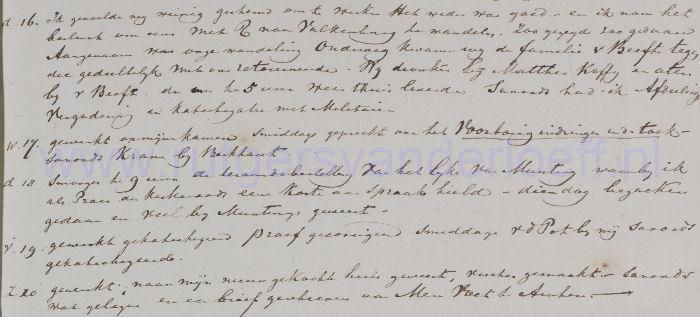 d 16. Ik gevoelde my weinig gestemd om te werken Het weder was goed – en ik nam het
besluit om eens met R naar Valkenburg te wandelen. Zoo gezegd zoo gedaan
Aangenaam was onze wandeling Onderweg kwamen wij de familie v Beeft tegen
die gedeeltelijk met ons retourneerde. Wy dronken by Matthes Koffy en aten
by v Beeft. de om te 5 uur weer thuis Savonds had ik Afdeeling
Vergadering en katechisatie met Militairen
W. 17. gewerkt op mijn kamer Smiddags gepreekt over het Voorbarig indringen in de toek-
Savonds Krans by Berkhout
d 18 Smorgens te 9 uur de van het lijk van Munting waarby ik
als Praes der kerkeraad een korte aanspraak hield – dien dag bezoeken
gedaan en veel by Muntings geweest –
V. 19. gewerkt gekatechiseerd preek Smiddags v d Pot by my Savonds
gekatechiseerd.
Z. 20 gewerkt, naar mijn nieuw gekocht huis geweest, gemaakt – Savonds
wat gelezen en een brief geschreven aan Mevr Voet te Arnhem –
www.rutgersvanderloeff.nl